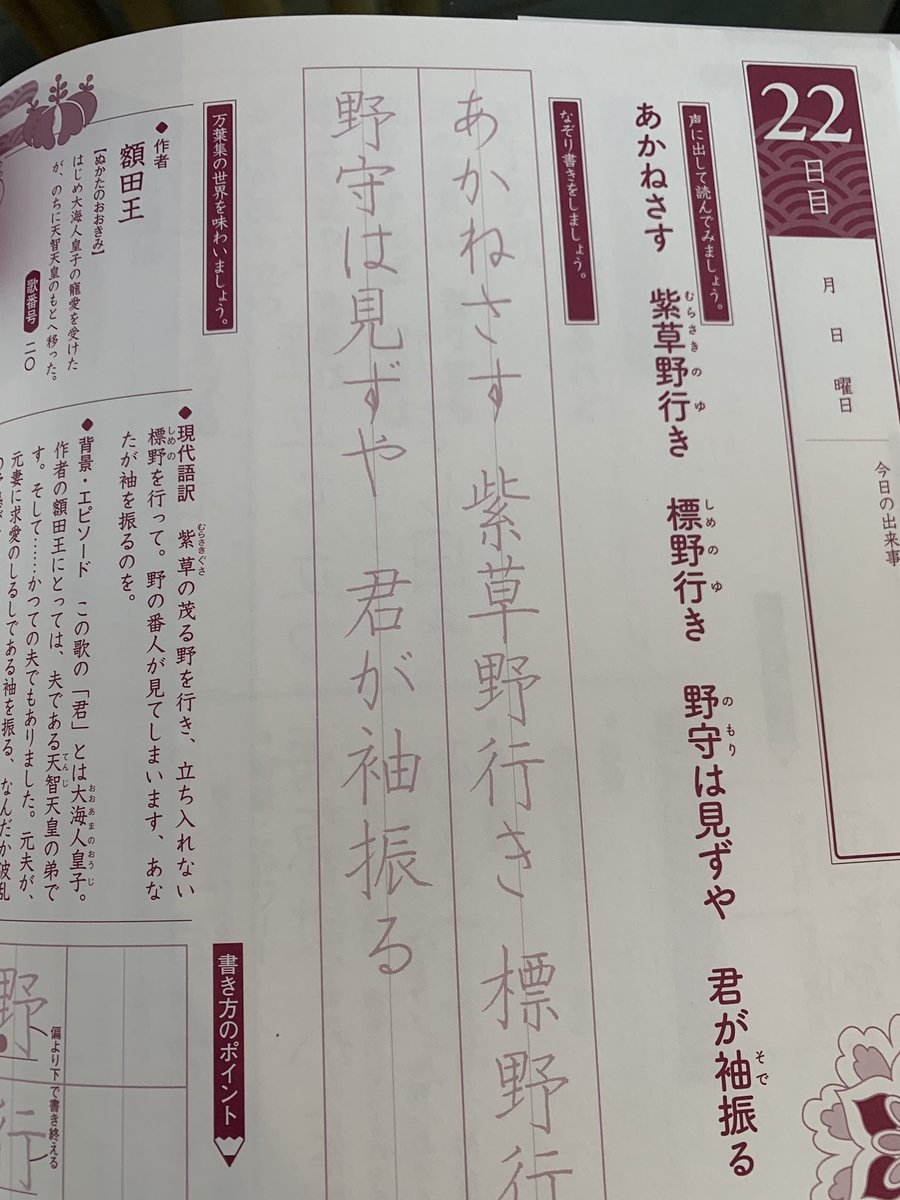 22日目
月 日 曜日
今日の出来事
声に出して読んでみましょう。
あかねさす 紫草野行き 標野行き 野守は見ずや 君が袖振る
むらさきの ゆ しめの ゆ のもり そで
なぞり書きをしましょう。
あかねさす 紫草野行き 標野行
野守は見ずや 君が袖振る
万葉集の世界を味わいましょう。
◆作者
額田王
【ぬかたのおおきみ】
はじめ大海人皇子の寵愛を受けた
が、のちに天智天皇のもとへ移った。
歌番号 二〇
◆現代語訳 紫草の茂る野を行き、立ち入れない
むらさきぐさ
標野を行って。野の番人が見てしまいます、あな
しめの
たが袖を振るのを。
◆背景・エピソード この歌の「君」とは大海人皇子。
おおあまのおうじ
作者の額田王にとっては、夫である天智天皇の弟で
てんじ
す。そして……かつての夫でもありました。元夫が、
元妻に求愛のしるしである袖を振る、なんだか波乱
書き方のポイント
野
偏より下で書き終える
行